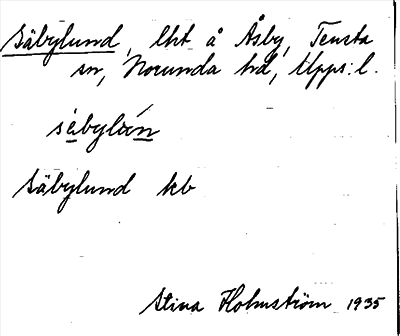 Säbylund, lht å Åsby, Tensta
sn, Norunda hd, Upps: l.
Säbylund kb
Stina Holmström 1935